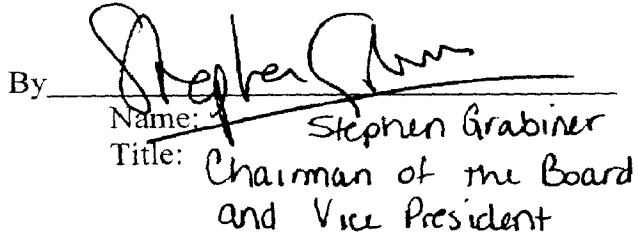 By Stephen G
Name: Stephen Grabiner
Title: Chairman of the Board
and Vice President